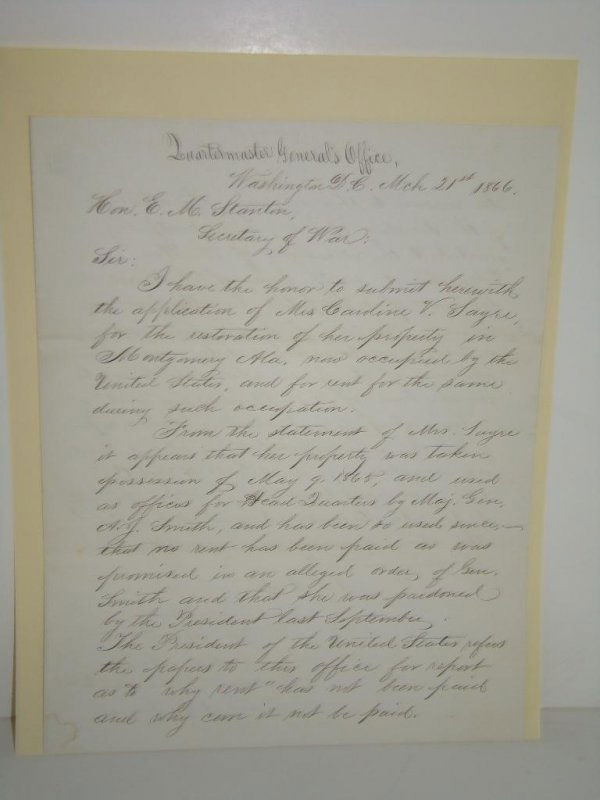 Quartermaster General's Office,
Washington D.C. Mch 21st 1866.
Hon. E. M. Stanton,
Secretary of War:
Sir:
I have the honor to submit herewith
the application of Mrs Caroline V. Sayre,
for the restoration of her property in
Montgomery Ala. now occupied by the
United States, and for rent for the same
during such occupation.
From the statement of Mrs. Sayre
it appears that her property was taken
possession of May 9, 1865, and used
as offices for Head Quarters by Maj. Gen.
A. J. Smith, and has been so used since,—
that no rent has been paid as was
promised in an alleged order, of Gen.
Smith and that she was pardoned
by the President last September,
The President of the United States refers
the papers to this office for report
as to "why rent" has not been paid
and why can it not be paid.